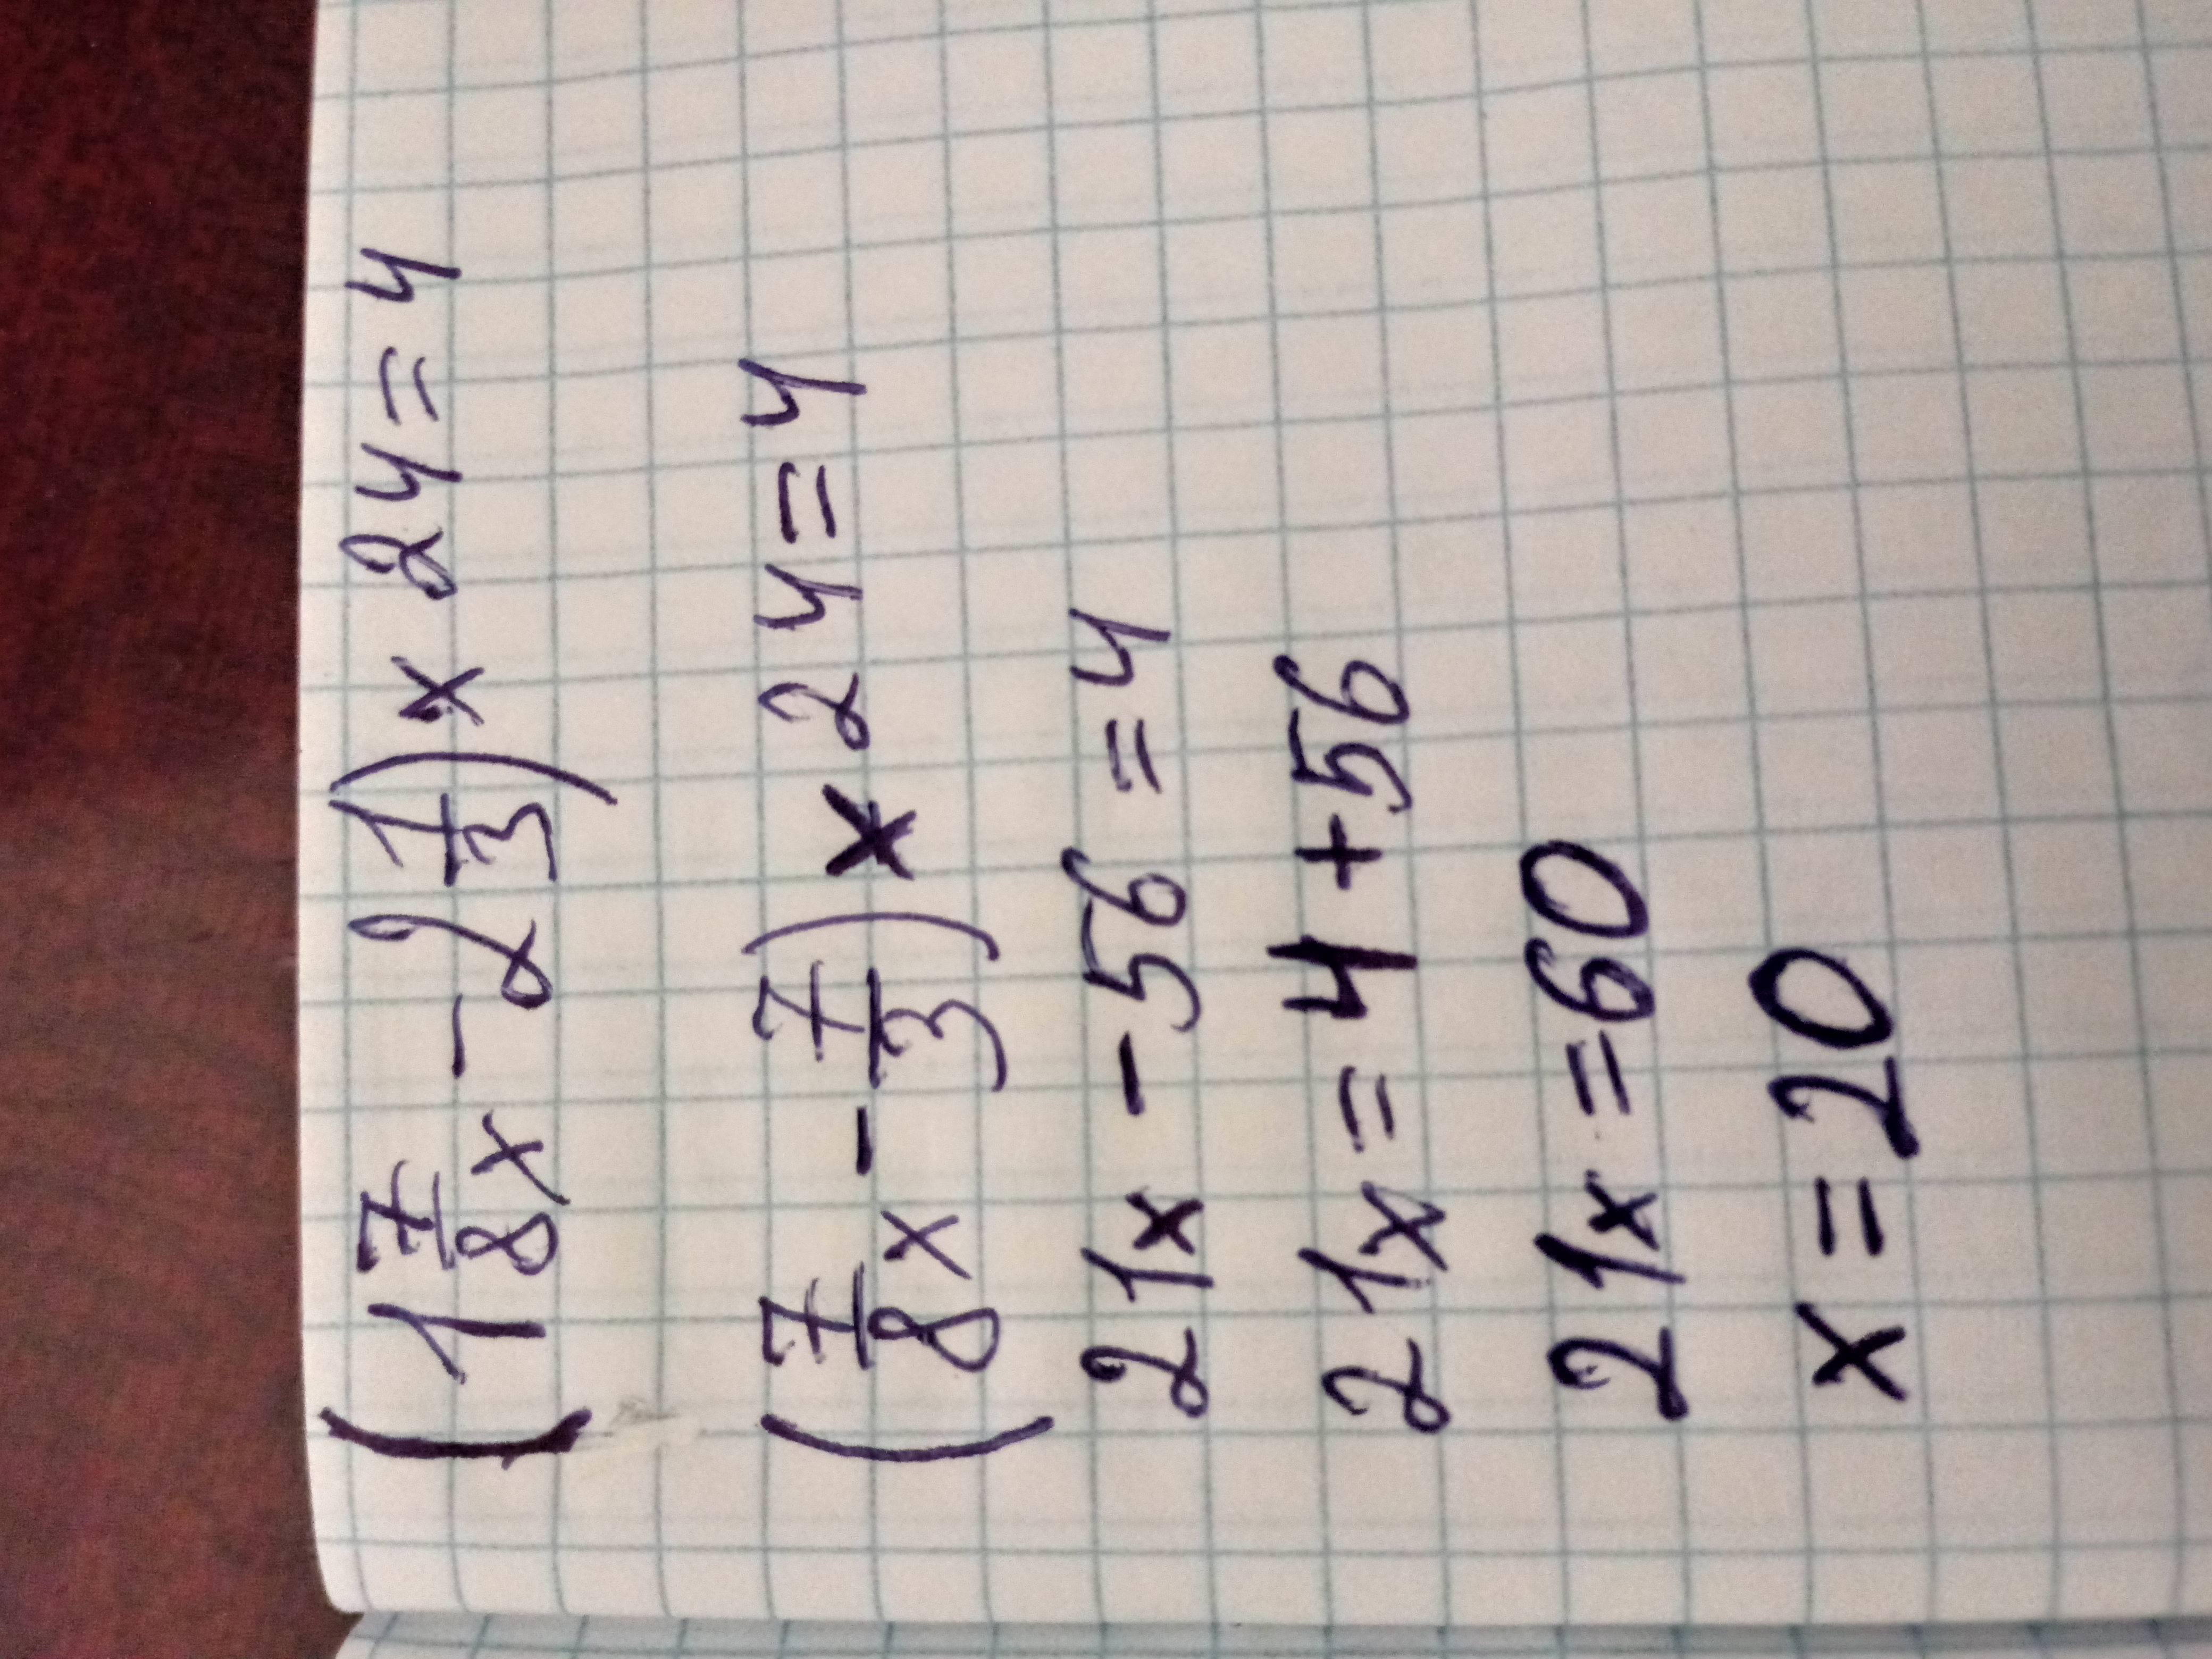 (1 7/8 x - 2 1/3) x 24 = 4
(7/8 x - 7/3) x 24 = 4
21x - 56 = 4
21x = 4 + 56
21x = 60
x = 20